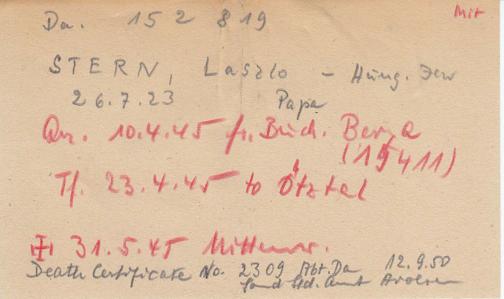 Da. 152 819
Mit
STERN, Laszlo - Hung. Jew
26.7.23 Papa
Arr. 10.4.45 fr. Buch. Berga
(19411)
Tf. 23.4.45 to Ötztal
31.5.45 Mittenw.
Death Certificate No. 2309 Abt. Da 12.9.50
Sond Std. Amt Arolsen